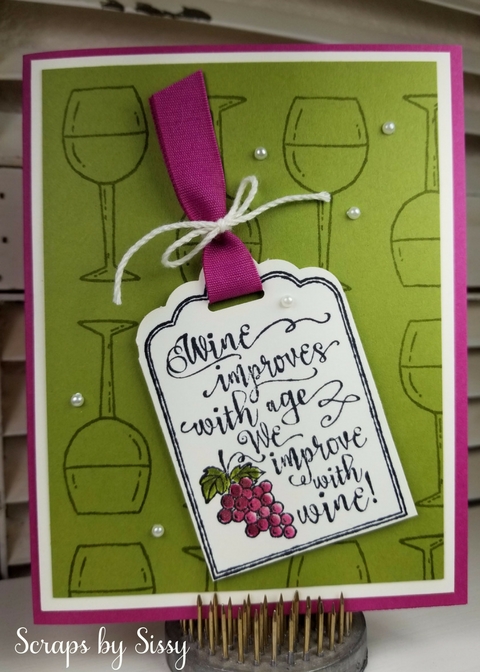 Wine
improves
with age
We
improve
with
wine!
Scraps by Sissy